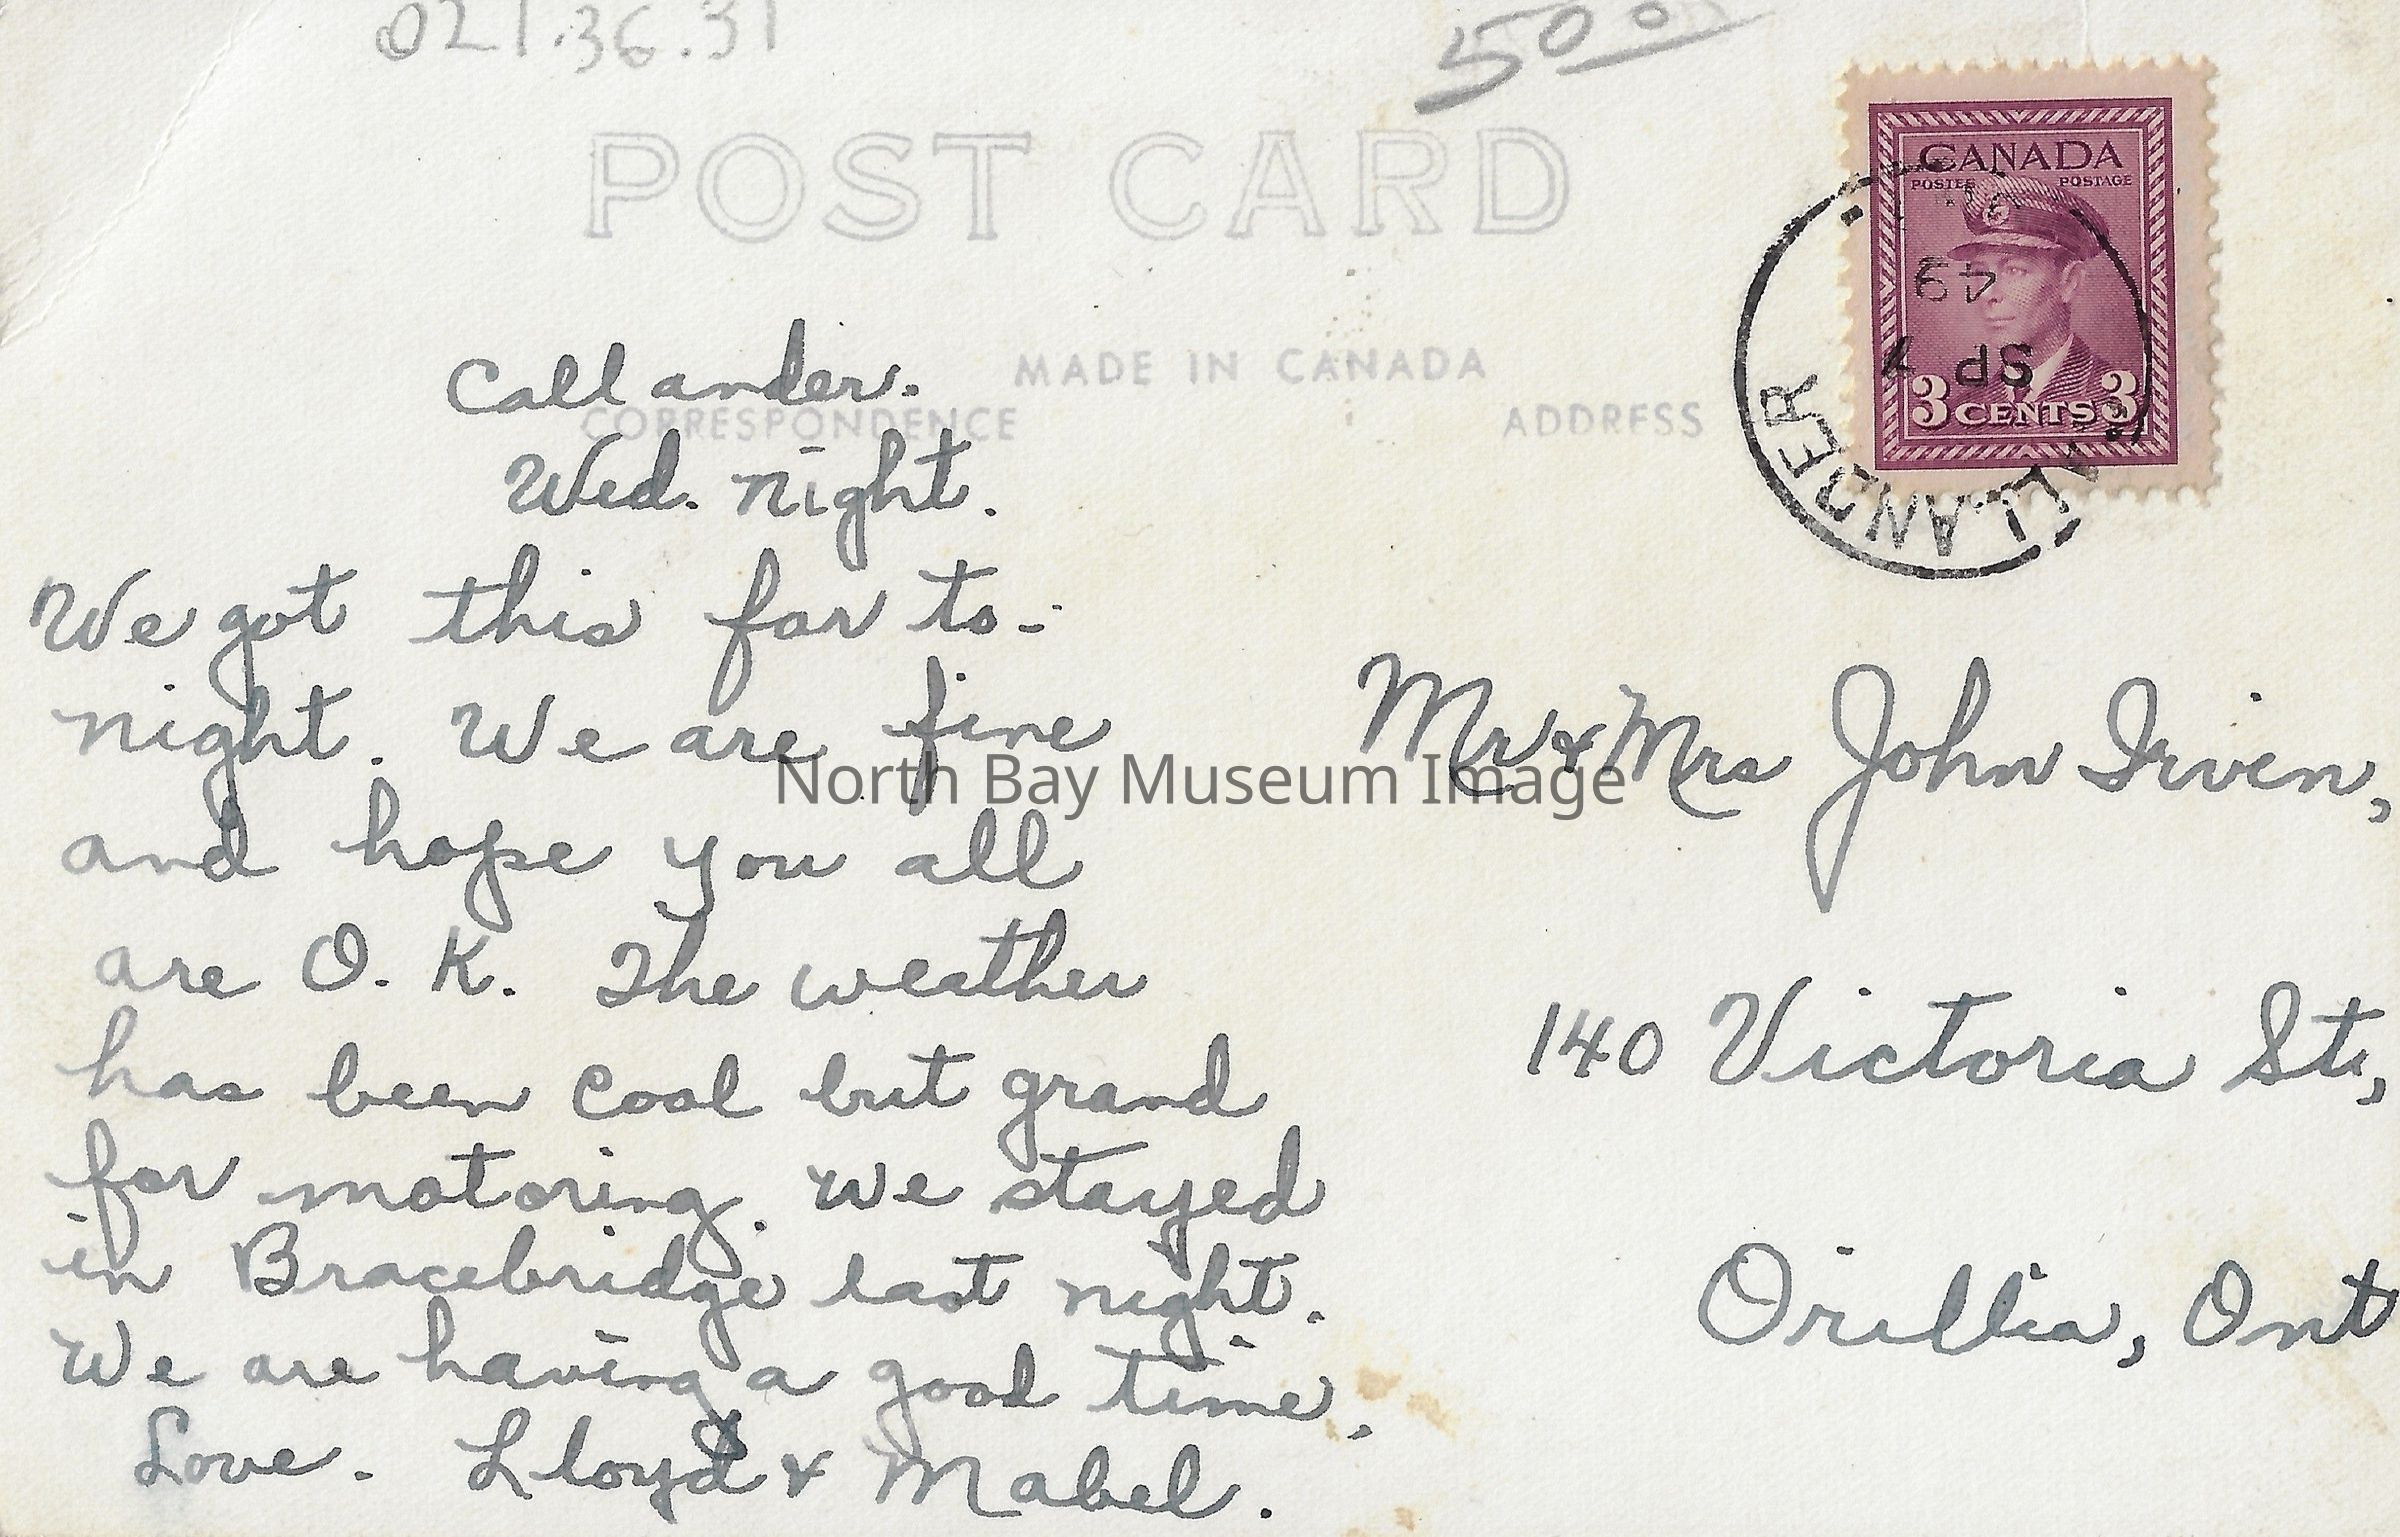 021.36.31
5.00
POST CARD
CANADA
POSTES POSTAGE
3 CENTS 3
CALLANDER
SP 7
49
MADE IN CANADA
CORRESPONDENCE
ADDRESS
Callander.
Wed. night.
We got this far to-
night. We are fine
and hope you all
are O. K. The weather
has been cool but grand
for motoring. We stayed
in Bracebridge last night.
We are having a good time.
Love. Lloyd & Mabel.
Mr & Mrs John Irven,
140 Victoria St,
Orillia, Ont
North Bay Museum Image